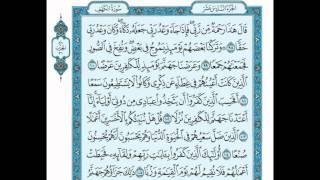 سُورَةُ الكَهْفِ
الجُزْءُ السَّادِسَ عَشَرَ
قَالَ هَٰذَا رَحْمَةٌ مِّن رَّبِّي فَإِذَا جَآءَ وَعْدُ رَبِّي جَعَلَهُۥ دَكَّآءَ وَكَانَ وَعْدُ رَبِّي
حَقًّا ٩٨ وَتَرَكْنَا بَعْضَهُمْ يَوْمَئِذٍ يَمُوجُ فِي بَعْضٍ وَنُفِخَ فِي ٱلصُّورِ
فَجَمَعْنَٰهُمْ جَمْعًا ٩٩ وَعَرَضْنَا جَهَنَّمَ يَوْمَئِذٍ لِّلْكَٰفِرِينَ عَرْضًا ١٠٠
ٱلَّذِينَ كَانَتْ أَعْيُنُهُمْ فِي غِطَآءٍ عَن ذِكْرِي وَكَانُوا۟ لَا يَسْتَطِيعُونَ سَمْعًا ١٠١
أَفَحَسِبَ ٱلَّذِينَ كَفَرُوٓا۟ أَن يَتَّخِذُوا۟ عِبَادِي مِن دُونِيٓ أَوْلِيَآءَ إِنَّآ
أَعْتَدْنَا جَهَنَّمَ لِلْكَٰفِرِينَ نُزُلًا ١٠٢ قُلْ هَلْ نُنَبِّئُكُم بِٱلْأَخْسَرِينَ أَعْمَٰلًا ١٠٣
ٱلَّذِينَ ضَلَّ سَعْيُهُمْ فِي ٱلْحَيَوٰةِ ٱلدُّنْيَا وَهُمْ يَحْسَبُونَ أَنَّهُمْ يُحْسِنُونَ
صُنْعًا ١٠٤ أُو۟لَٰٓئِكَ ٱلَّذِينَ كَفَرُوا۟ بِـَٔايَٰتِ رَبِّهِمْ وَلِقَآئِهِۦ فَحَبِطَتْ
أَعْمَٰلُهُمْ فَلَا نُقِيمُ لَهُمْ يَوْمَ ٱلْقِيَٰمَةِ وَزْنًا ١٠٥ ذَٰلِكَ جَزَآؤُهُمْ جَهَنَّمُ